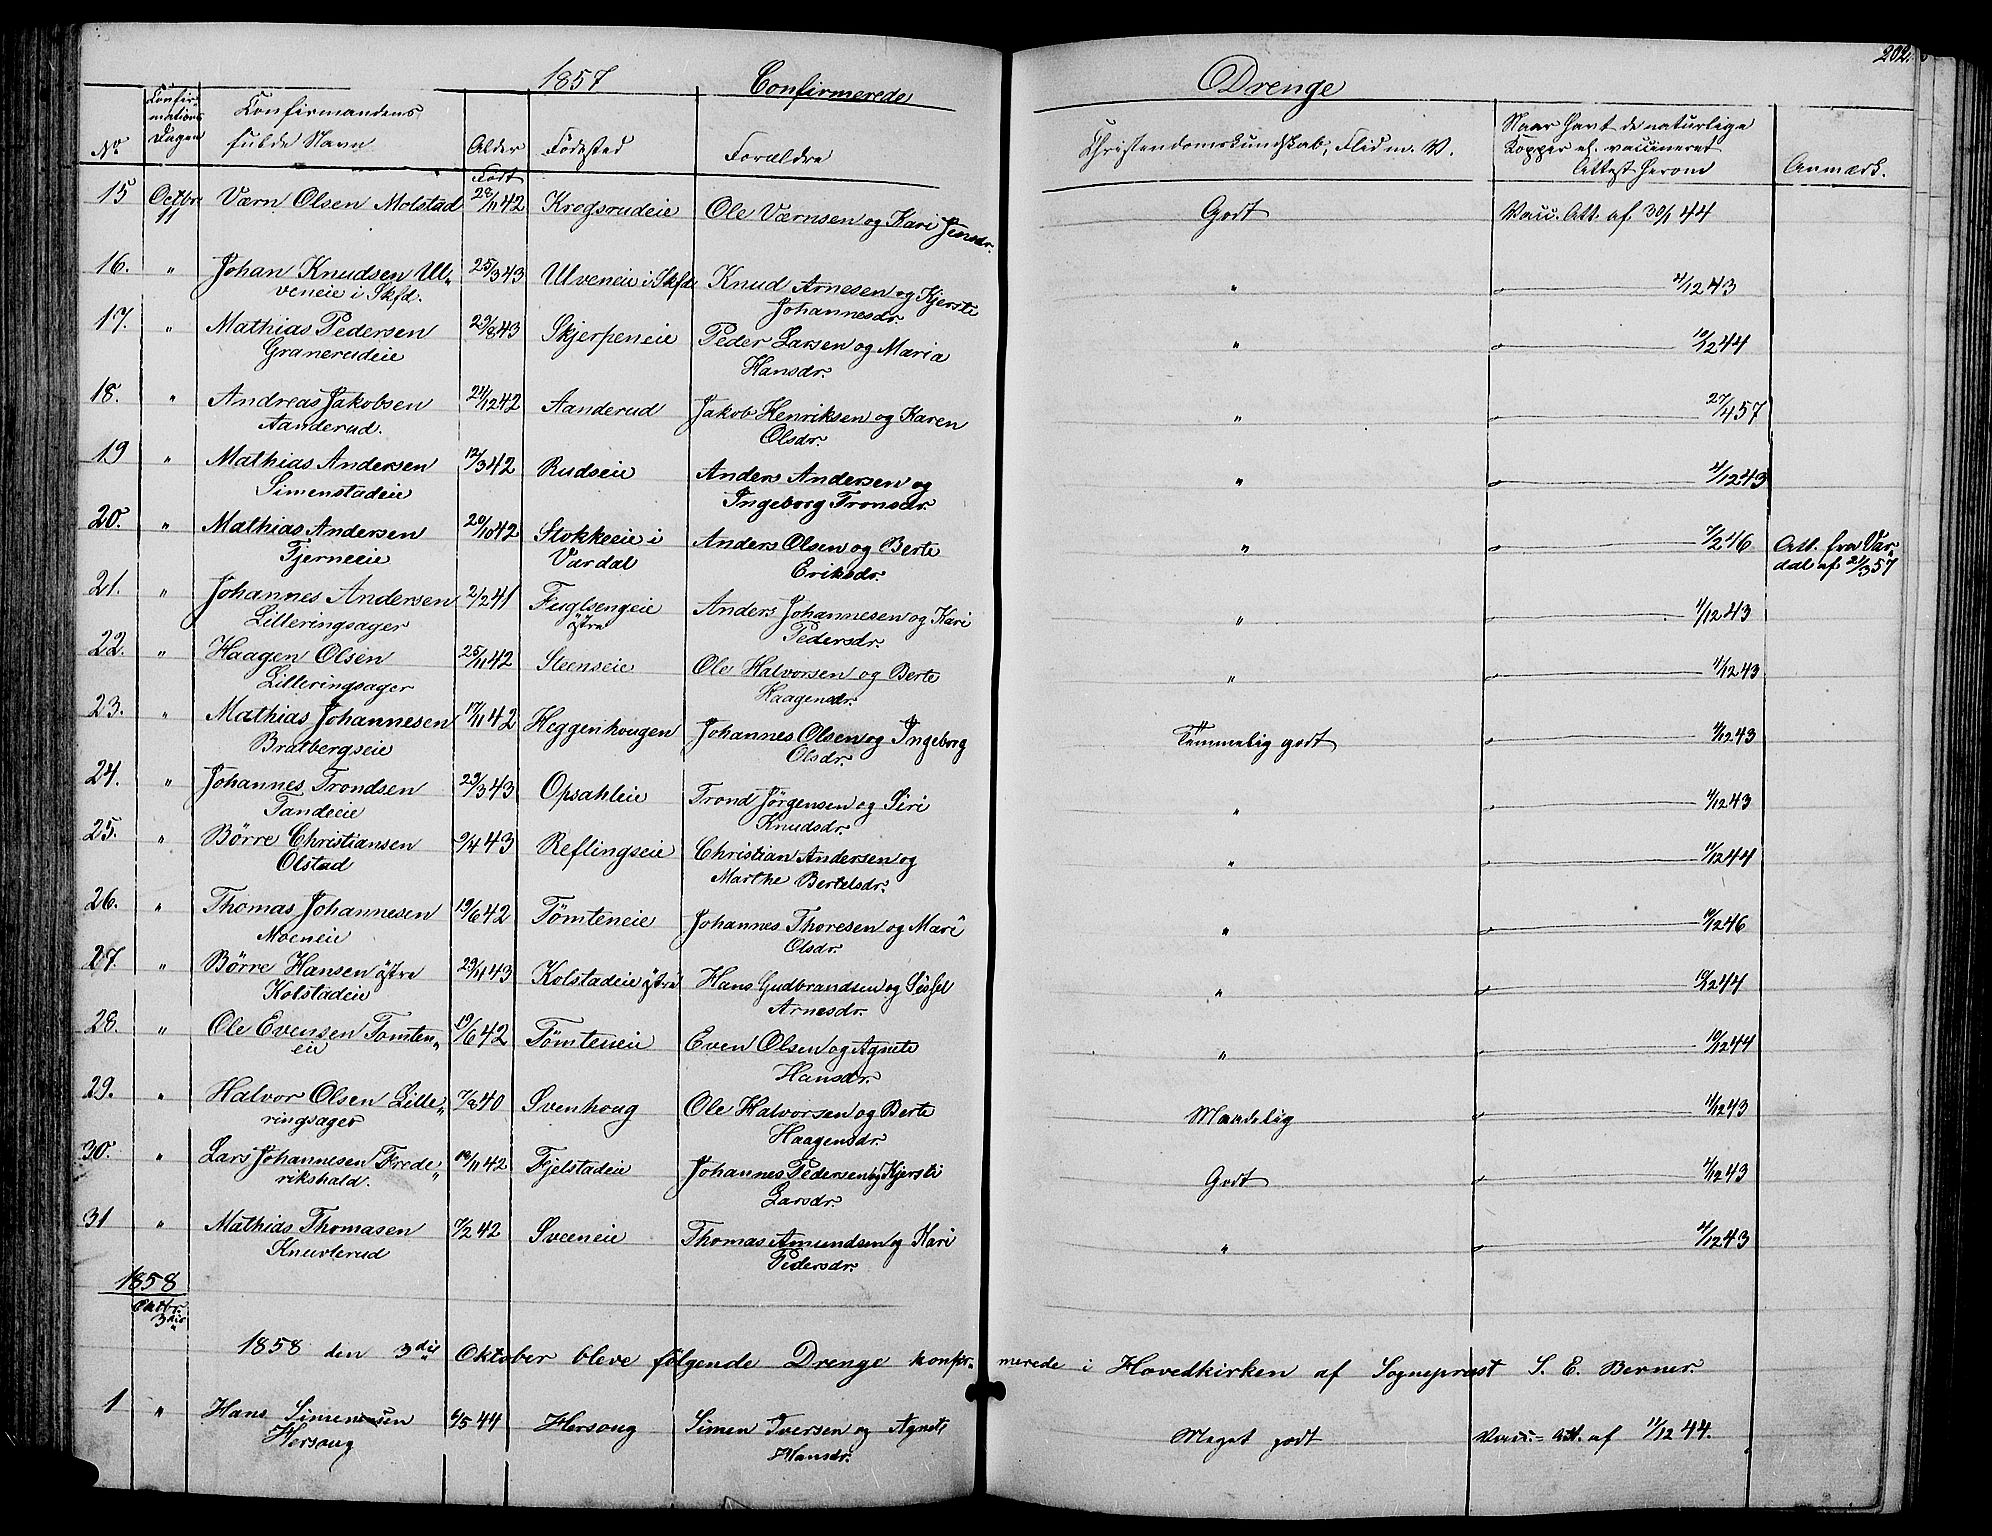 202.
1857 Confirmerede Drenge
No. Confirmations Dagen Confirmandens fulde Navn Alder Fødested Forældre Christendomskundskab, Flid m. V. Naar havt de naturlige Kopper el. vaccineret Attest herom Anmærk.
Født
15 Octbr. 11 Værn Olsen Molstad 28/11 42 Krogsrudeie Ole Værnsen og Kari Jensdr. Godt Vacc. Att. af 30/1 44
16. " Johan Knudsen Ul-
veneie i Skfd. 25/3 43 Ulveneie i Skfd. Knud Arnesen og Kjersti
Johannesdr. " 4/12 43
17. " Mathias Pedersen
Granerudeie 29/8 43 Skjerpeneie Peder Larsen og Maria
Hansdr. " 10/12 44
18. " Andreas Jakobsen
Aanderud. 21/12 42 Aanderud Jakob Henriksen og Karen
Olsdr. " 27/4 57
19 " Mathias Andersen
Simenstadeie 12/3 42 Rudseie Anders Andersen og
Ingeborg Tronsdr. " 4/12 43
20. " Mathias Andersen
Tjerneeie 20/10 42 Stokkeeie i
Vardal Anders Olsen og Berte
Eriksdr. " 7/2 46 Att. fra Var-
dal af 21/3 57
21. " Johannes Andersen
Lilleringsager 2/2 41 Fuglsengeie
østre Anders Johannesen og Kari
Pedersdr. " 4/12 43
22. " Haagen Olsen
Lilleringsager 25/11 42 Steenseie Ole Halvorsen og Berte
Haagensdr. " 4/12 43
23. " Mathias Johannesen
Bratbergseie 17/11 42 Heggenhougen Johannes Olsen og Ingeborg
Olsdr. Temmelig godt 4/12 43
24. " Johannes Trondsen
Tandeeie 29/3 43 Opsahleie Trond Jørgensen og Siri
Knudsdr. " 4/12 43
25. " Børre Christiansen
Olstad 9/4 43 Reflingseie Christian Andersen og
Marthe Bertelsdr. " 11/12 44
26. " Thomas Johannesen
Moeneie 19/6 42 Tømteneie Johannes Thoresen og Mari
Olsdr. " 10/12 46
27. " Børre Hansen østre
Kolstadeie 29/11 43 Kolstadeie østre Hans Gudbrandsen og Sissel
Arnesdr. " 10/12 44
28. " Ole Evensen Tømten-
eie 19/6 42 Tømteneie Even Olsen og Agnete
Hansdr. " 10/12 44
29. " Halvor Olsen Lille-
ringsager 7/8 40 Svenhoug Ole Halvorsen og Berte
Haagensdr. Maadelig 4/12 43
30. " Lars Johannesen Frede-
rikshald. 10/11 42 Fjelstadeie Johannes Pedersen og Kjersti
Larsdr. Godt 4/12 43
31 " Mathias Thomasen
Knuvlerud 7/2 42 Sveeneie Thomas Amundsen og Kari
Pedersdr. " 4/12 43
1858
Oktbr.
3die
1858 den 3die Oktober bleve følgende Drenge konfir- merede i Hovedkirken af Sogneprest S. E. Berner.
1 " Hans Simensen
Hersoug 6/5 44 Hersoug Simen Iversen og Agnete
Hansdr. Meget godt Vacc.- Att. af 11/12 44.